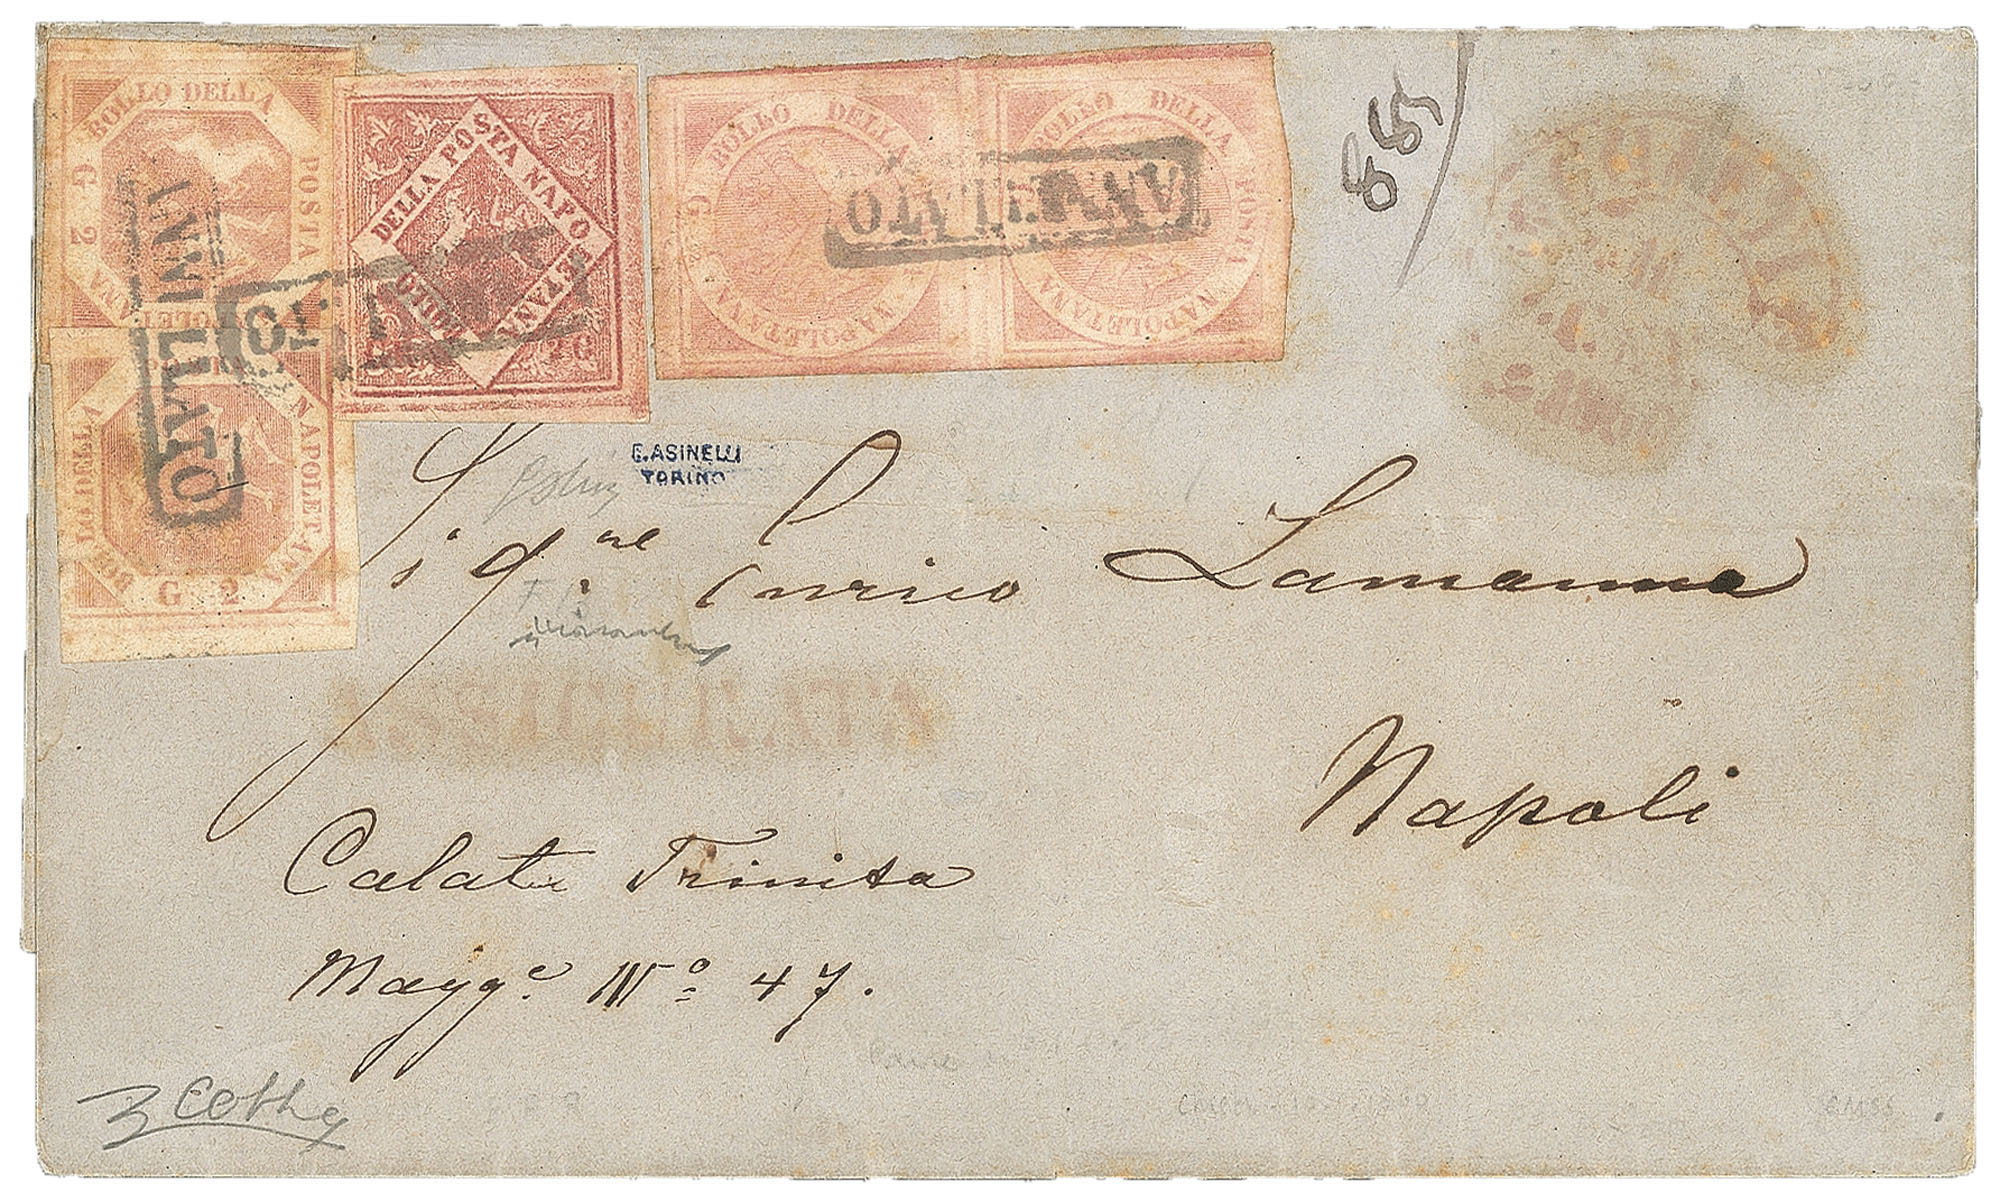 BOLLO DELLA POSTA NAPOLETANA G 2
BOLLO DELLA POSTA NAPOLETANA
BOLLO DELLA POSTA NAPOLETANA G
BOLLO DELLA POSTA NAPOLETANA
BOLLO DELLA NAPOLETANA G 2
ANNULLATO
ANNULLATO
ANNULLATO
885
G. ASINELLI
TORINO
Sigre. Enrico Lamanna
Napoli
Calata Trinita
Maggre. No 47.